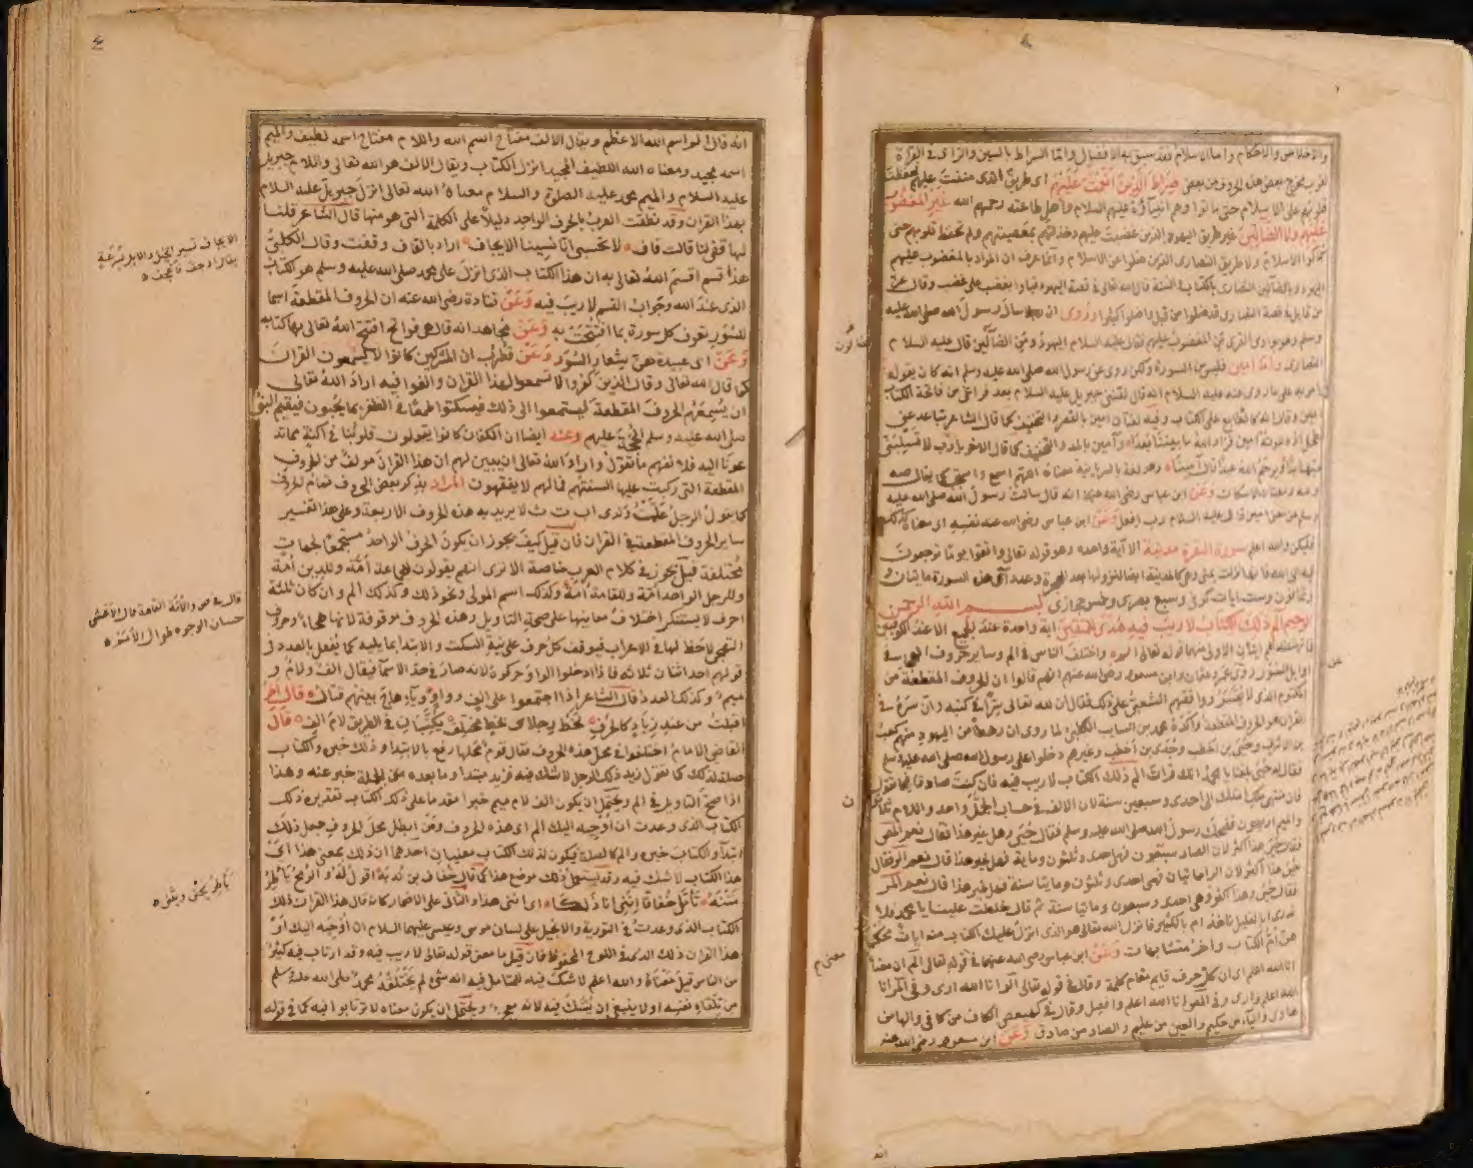 والاخلاص والاحكام واما الاسلام فقد سبق به الافضال واما السراط بالسين والزاى فى القراة
لقرب مخرج بعض هذه الحروف من بعض صِرَاطَ الَّذِينَ اَنْعَمْتَ عَلَيْهِمْ اى طريق الذى مننت عليهم فحفظت
قلوبهم على الاسلام حتى ماتوا وهم انبياؤه عليهم السلام واهل طاعته رحمهم الله غَيْرِ الْمَغْضُوبِ
عَلَيْهِمْ وَلَا الضَّالِّينَ غير طريق اليهود الذين غضبت عليهم وخذلتهم بمعصيتهم ولم تحفظ قلوبهم حتى
تركوا الاسلام ولا طريق النصارى الذين ضلوا عن الاسلام وانما عرف ان المراد بالمغضوب عليهم
اليهود وبالضالين النصارى بالكتاب والسنة قال الله تعالى فى قصة اليهود فباؤا بغضب على غضب وقال عز
من قايل فى قصة النصارى قد ضلوا من قبل واضلوا كثيرا وروى ان رجلا سال رسول الله صلى الله عليه
وسلم وهو بوادى القرى من المغضوب عليهم فقال عليه السلام اليهود ومن الضالين قال عليه السلام
النصارى واما امين فليس من السورة ولكن روى عن رسول الله صلى الله عليه وسلم انه كان يقوله
ويامر به على ما روى عنه عليه السلام انه قال لقننى جبريل عليه السلام بعد فراغى من فاتحة الكتاب
امين وقال انه كالطابع على الكتاب وفيه لغتان امين بالقصر والتخفيف كما قال الشاعر تباعد عنى
فطحل اذ دعوته امين فزاد الله ما بيننا بعدا وآمين بالمد والتخفيف كما قال الاخر يا رب لا تسلبنى
حبها ابدا ويرحم الله عبدا قال آمينا وهو لغة بالسريانية معناه اللهم اسمع واستجب كما يقال صه
ومه ومعناه الاسكات وعن ابن عباس رضى الله عنهما انه قال سالت رسول الله صلى الله عليه
وسلم عن معنى امين قال عليه السلام رب افعل وعن ابن عباس رضى الله عنه نفسه اى معناه كذلك
فليكن والله اعلم سورة البقرة مدنية الا آية واحدة وهو قوله تعالى واتقوا يوما ترجعون
فيه الى الله فانها نزلت بمنى وهى كالمدنية ايضا لنزولها بعد الهجرة وعدد آى هذه السورة مايتان و
ثمانون وست ايات كوفى وسبع بصرى وخمس حجازى بسم الله الرحمن
الرحيم الم ذلك الكتاب لا ريب فيه هدى للمتقين اية واحدة عند الجميع الا عند الكوفيين
واختلف الناس فى الم وساير حروف الهجاء فى
اوايل السور روى عن عمر وعثمان وابن مسعود رضى الله عنهم انهم قالوا ان الحروف المقطعة من
المكتوم الذى لا يفسر ووافقهم الشعبى على ذلك فقال ان لله تعالى سرا فى كتبه وان سره فى
القرآن هو الحروف المقطعة واكده محمد بن السايب الكلبى لما روى ان رهطا من اليهود منهم كعب
بن الاشرف وحيى بن اخطب وجدى بن اخطب وغيرهم دخلوا على رسول الله صلى الله عليه وسلم
فقال له حيى بلغنا يا محمد انك قرات الم ذلك الكتاب لا ريب فيه فان كنت صادقا فيما تقول
فان منتهى ملك امتك الى احدى وسبعين سنة لان الالف فى حساب الجمل واحد واللام ثلثون
والميم اربعون فضحك رسول الله صلى الله عليه وسلم فقال حيى وهل غير هذا فقال نعم المص
فقال حيى هذا اكثر لان الصاد سبعون فهى احدى وثلثون وماية فهل غير هذا قال نعم الر فقال
حيى هذا اكثر لان الرا مايتان فهى احدى وثلثون ومايتا سنة فهل غير هذا قال نعم المر
فقال حيى وهذا اكثر وهى احدى وسبعون ومايتا سنة ثم قال خلطت علينا يا محمد فلا
ندرى ابالقليل ناخذ ام بالكثير فانزل الله تعالى هو الذى انزل عليك الكتاب منه ايات محكمات
هن ام الكتاب واخر متشابهات وعن ابن عباس رضى الله عنهما فى قوله تعالى الم ان معناه
انا الله اعلم اى ان كل حرف قايم مقام كلمة وقال فى قوله تعالى الر انا الله ارى وفى المر انا
الله اعلم وارى وفى المص انا الله اعلم وافصل وقال فى كهيعص الكاف من كافى والها من
هادى والياء من حكيم والعين من عليم والصاد من صادق وعن ابن مسعود رضى الله عنه
معنى م
انه
انه قال الم اسم الله الاعظم ويقال الالف مفتاح اسم الله واللام مفتاح اسمه لطيف والميم
اسمه مجيد ومعناه الله اللطيف المجيد انزل الكتاب ويقال الالف هو الله تعالى واللام جبريل
عليه السلام والميم محمد عليه الصلوة والسلام معناه الله تعالى انزل جبريل عليه السلام
بهذا القران وقد نطقت العرب بالحرف الواحد دليلا على الكلمة التى هو منها قال الشاعر قلنا
لها قفى لنا قالت قاف لا تحسبى انا نسينا الايجاف اراد بالقاف وقفت وقال الكلبى
هذا قسم اقسم الله تعالى به ان هذا الكتاب الذى انزل على محمد صلى الله عليه وسلم هو الكتاب
الذى عند الله وجواب القسم لا ريب فيه وَعَنْ قتادة رضى الله عنه ان الحروف المقطعة اسما
للسور تعرف كل سورة بما افتتحت به وَعَنْ مجاهد انه قال هى فواتح افتتح الله تعالى بها كتابه
وَعَنْ ابى عبيدة هى شعار السور وَعَنْ قطرب ان المشركين كانوا لا يستمعون القران
كما قال الله تعالى وقال الذين كفروا لا تسمعوا لهذا القران والغوا فيه اراد الله تعالى
ان يسمعهم الحروف المقطعة ليستمعوا الى ذلك فيسكتوا طمعا فى الظفر بما يحبون فيقيم النبى
صلى الله عليه وسلم الحجة عليهم وعنه ايضا ان الكفار كانوا يقولون قلوبنا فى اكنة مما تد
عونا اليه فلا نفهم ما تقول واراد الله تعالى ان يبين لهم ان هذا القران مولف من الحروف
المقطعة التى ركبت عليها السنتهم فما لهم لا يفقهون المراد بذكر بعض الحروف تمام الحرف
كما يقول الرجل علمت ولدى ا ب ت ث لا يريد به هذه الحروف الاربعة وعلى هذا تفسير
ساير الحروف المقطعة فى القران فان قيل كيف يجوز ان يكون الحرف الواحد مستجمعا لجهات
مختلفة قيل يجوز فى كلام العرب خاصة الا ترى انهم يقولون للجماعة امة وللدين امة
وللرجل الواحد امة وللقامة امة وكذلك اسم المولى ونحو ذلك وكذلك الم وان كان ثلثة
احرف لا يستنكر اختلاف معانيها على صحة التاويل وهذه الحروف موقوفة لانها هجاء وحروف
التهجى لا حظ لها فى الاعراب فيوقف كل حرف على نية السكت والابتدا بما يليه كما يفعل بالعدد فى
قولهم احد اثنان ثلاثه فاذا دخلوا الواو حركوه لانه صار فى حد الاسما فيقال الف ولام و
ميم وكذلك العدد قال الشاعر اذا اجتمعوا على الف وواو وياء هاج بينهم قتال قال اخر
اقبلت من عند زياد كالخرف تخط رجلاى بخط مختلف تكتبان فى الطريق لام الف قال
القاضى الامام اختلفوا فى محل هذه الحروف فقال قوم محلها رفع بالابتدا وذلك خبره والكتاب
صلة لذلك كما تقول زيد ذلك الرجل لا شك فيه فزيد مبتدا وما بعده من الجملة خبر عنه وهذا
اذا صح التاويل فى الم ويحتمل ان يكون الف لام ميم خبرا مقدما على ذلك الكتاب تقديره ذلك
الكتاب الذى وعدت ان اوحيه اليك الم اى هذه الحروف ومن ابطل محل الحروف جعل ذلك
ابتدا والكتاب خبره ويكون لذلك الكتاب معنيان احدهما ان ذلك بمعنى هذا اى
هذا الكتاب لا شك فيه وقد يستعمل ذلك موضع هذا كما قال خفاف بن ندبة اقول له والرمح ياطر
متنه تامل خفافا اننى انا ذلكا اى اننى هذا والثانى على الاضمار كانه قال هذا القران ذلك
الكتاب الذى وعدت فى التورية والانجيل على لسان موسى وعيسى عليهما السلام ان اوحيه اليك او
هذا القران ذلك الذى فى اللوح المحفوظ فان قيل ما معنى قوله تعالى لا ريب فيه وقد ارتاب فيه كثير
من الناس قيل معناه والله اعلم لا شك فيه للمتامل فيه انه شئ لم يختلقه محمد صلى الله عليه وسلم
من تلقاء نفسه او لا ينبغى ان يشك فيه لانه معجز ويحتمل ان يكون معناه لا ترتابوا فيه كما فى قوله
الايجاف تسيير الخيل والابل بسرعة
قال فى ص والامة القامة قال الاعشى
حسان الوجوه طوال الامم
ياطر يحنى ويثنى